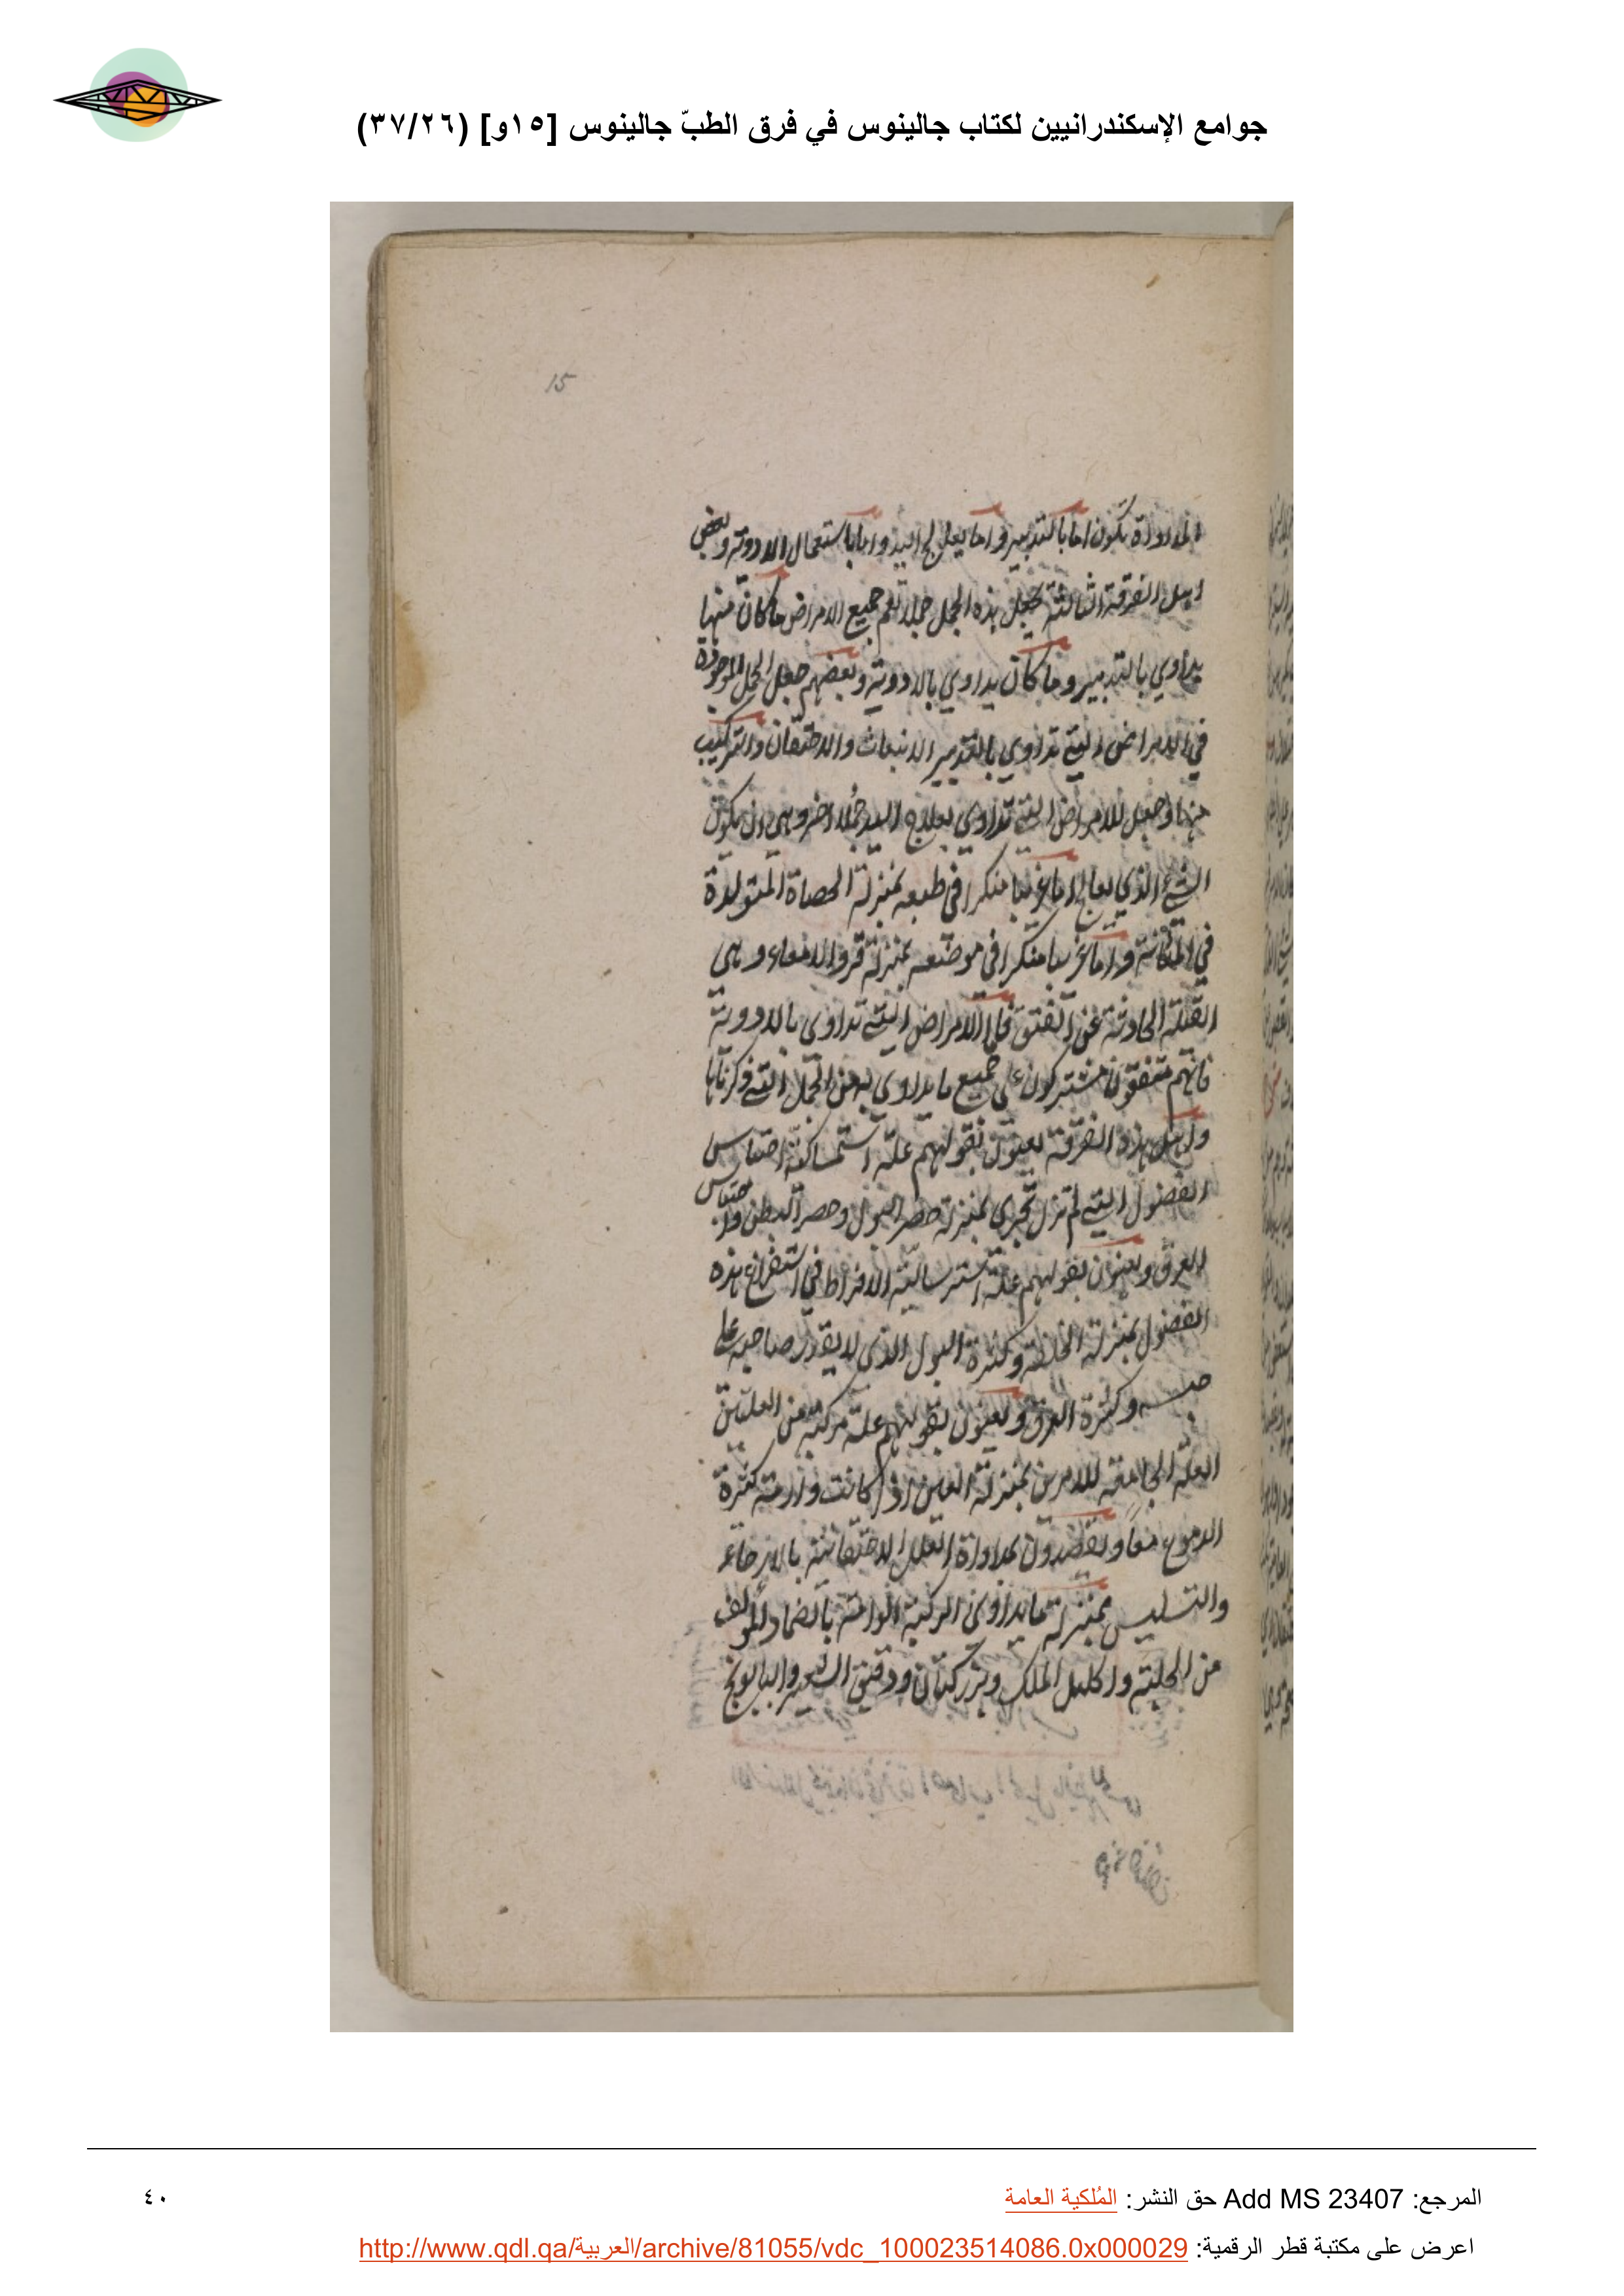 جوامع الإسكندرانيين لكتاب جالينوس في فرق الطبّ جالينوس [١٥و] (٣٧/٢٦)
15
المداواة تكون اما بالتدبير واما بعلاج اليد واما باستعمال الادوية وبعض
اهل الفرقة الثالثة جعل هذه الجمل جملا تعم جميع الامراض ما كان منها
يداوي بالتدبير وما كان يداوي بالادوية وبعضهم جعل الجمل الموجودة
في الامراض التي تداوي بالتدبير الانبعاث والاحتقان والتركيب
منهما وجعل للامراض التي تداوي بعلاج اليد جملا اخر وهي ان يكون
الشيء الذي يعالج اما غريبا منكرا في طبعه بمنزلة الحصاة المتولدة
في المثانة واما غريبا منكرا في موضعه بمنزلة قرو الامعاء وهي
القيلة الحادثة عن الفتق فاما الامراض التي تداوي بالادوية
فانهم متفقون مشتركون على جميع ما يداوي به من الجمل التي ذكرناها
واهل هذه الفرقة يعنون بقولهم علة استمساكية احتباس
الفضول التي لم تزل تجري بمنزلة حصر البول وحصر البطن واحتباس
العرق ويعنون بقولهم علة استرسالية الافراط في استفراغ هذه
الفضول بمنزلة الخلفة وكثرة البول الذي لا يقدر صاحبه على
حبسه وكثرة العرق ويعنون بقولهم علة مركبة من العلتين
العلة الجامعة للامرين بمنزلة العين اذا كانت وارمة كثيرة
الدموع معا ويقصدون لمداواة العلل الاحتقانية بالارخاء
والتسليس بمنزلة ما يداوي الركبة الوارمة بالضماد المؤلف
من الحلبة واكليل الملك وبزر كتان ودقيق الشعير والبابونج
المرجع: Add MS 23407 حق النشر: المُلكية العامة
٤٠
اعرض على مكتبة قطر الرقمية: http://www.qdl.qa/العربية/archive/81055/vdc_100023514086.0x000029